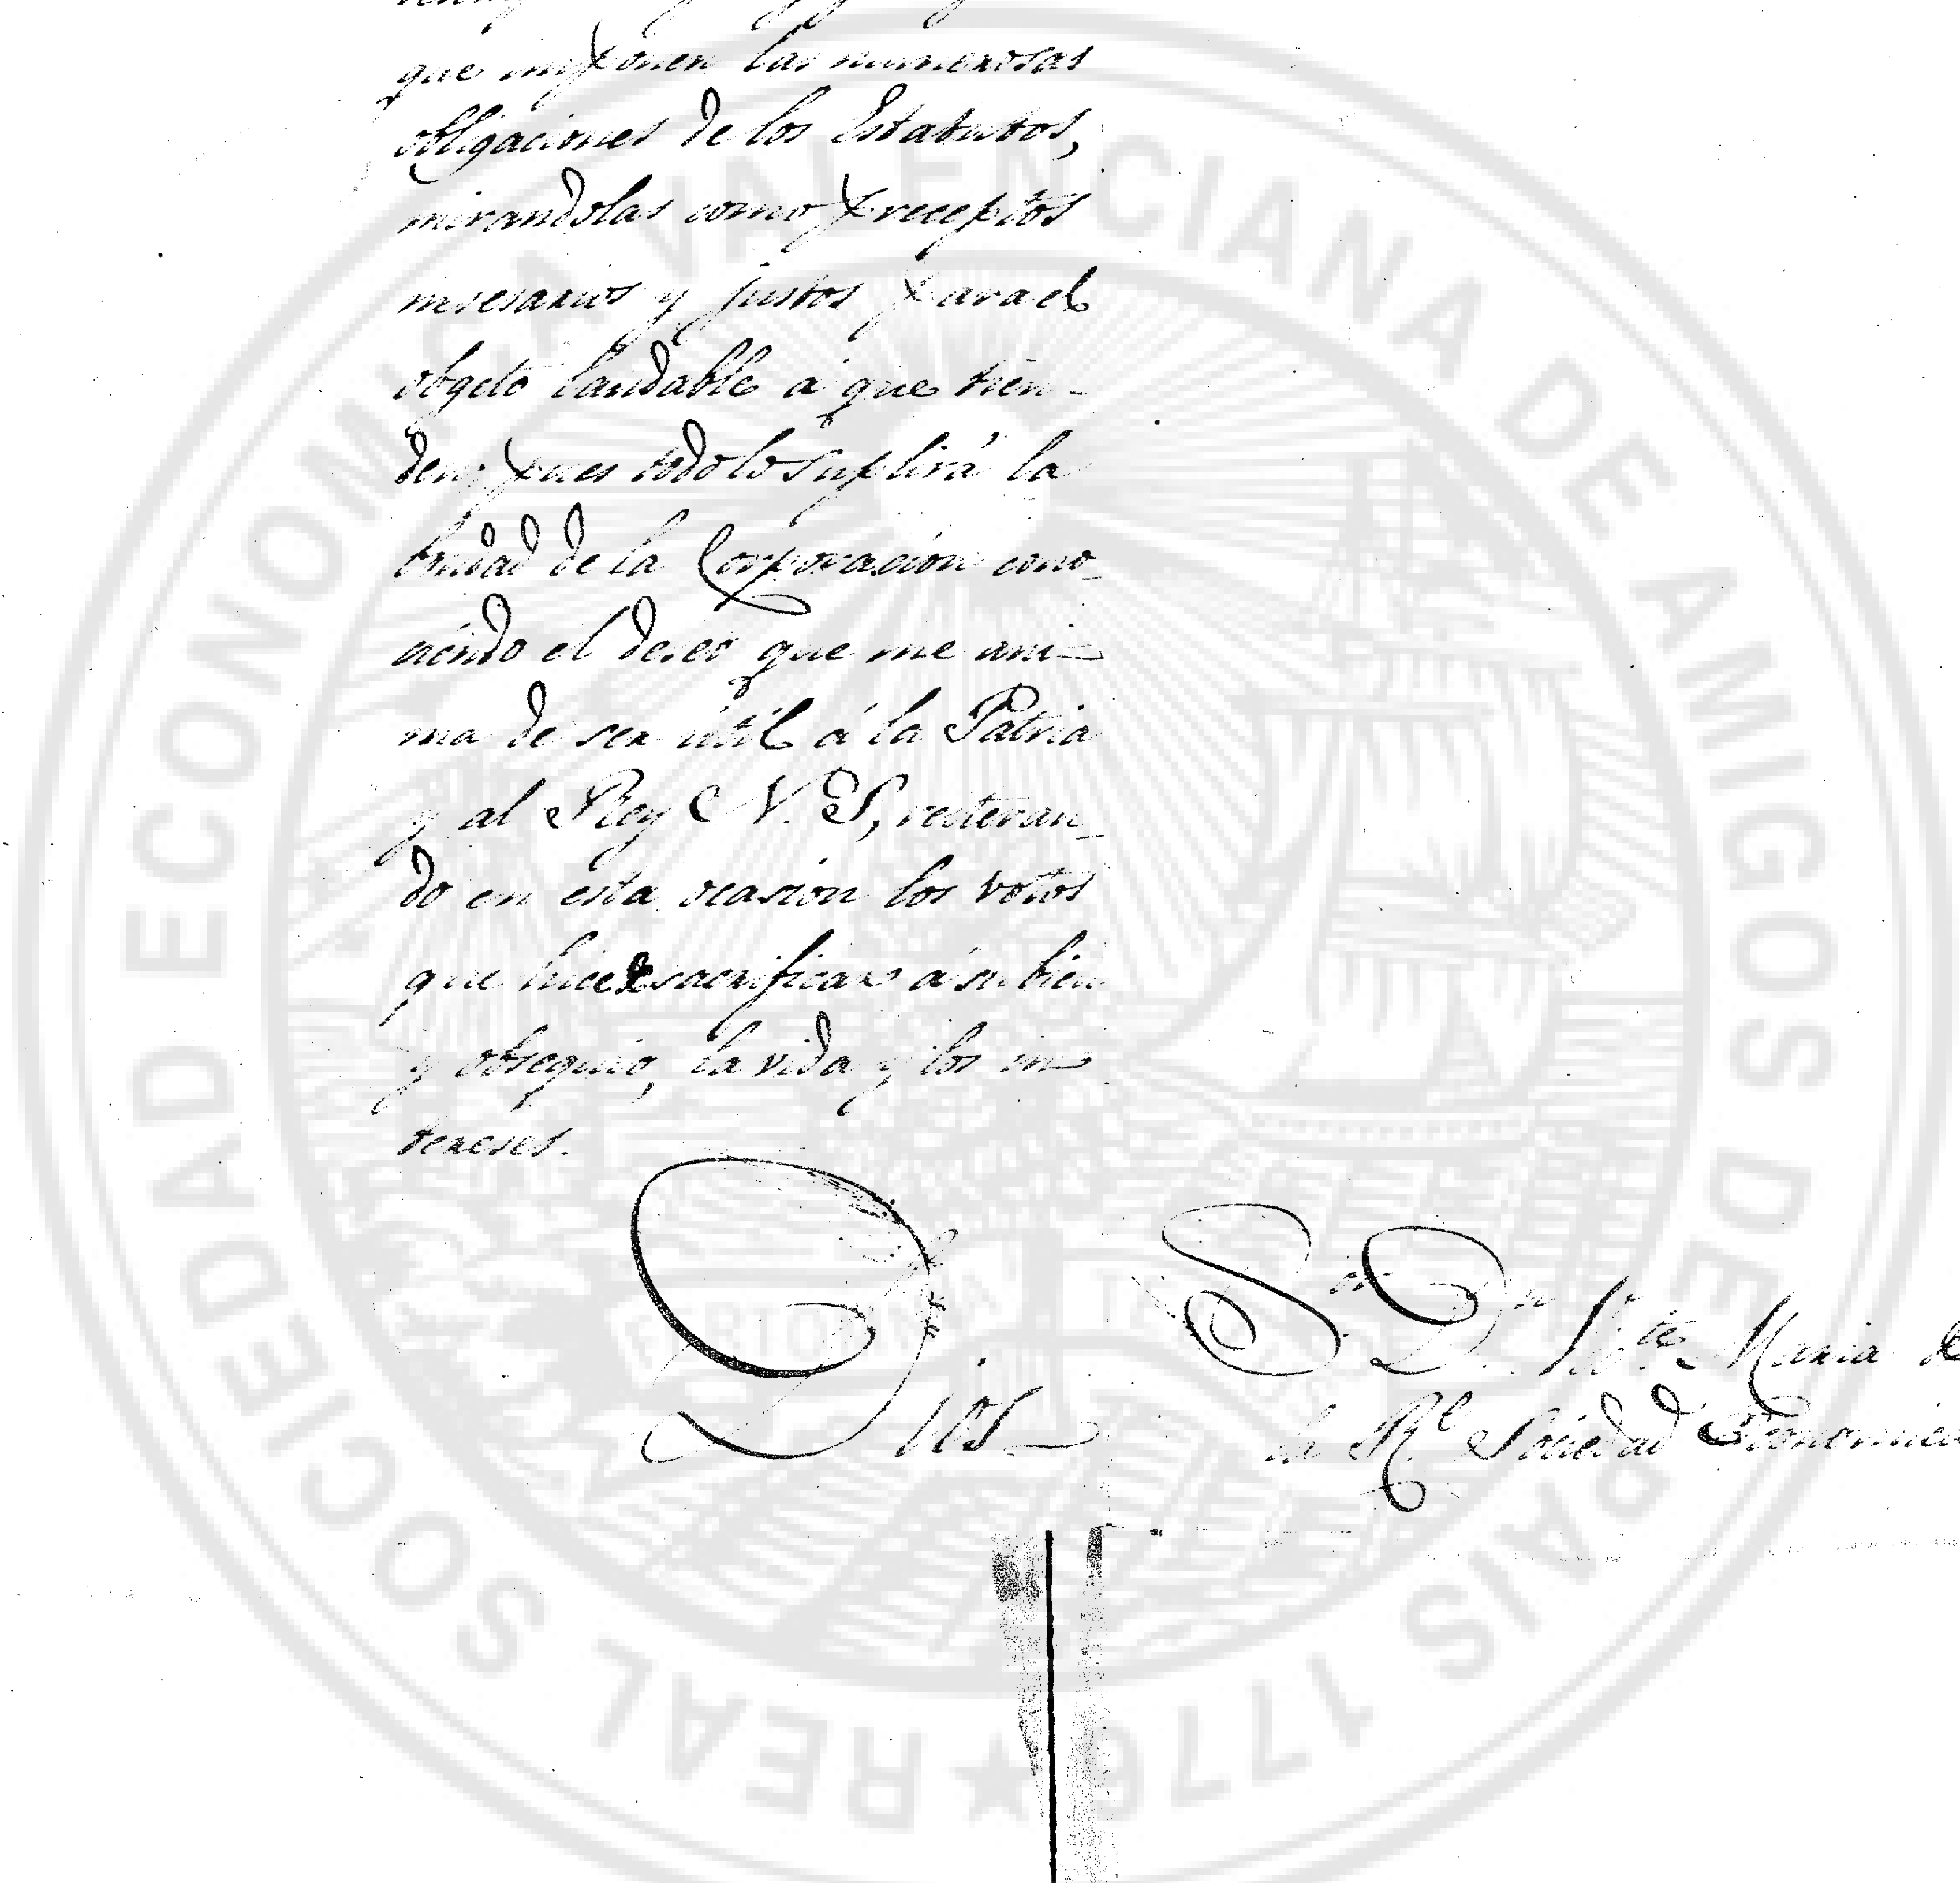 que imponen las numerosas
obligaciones de los Estatutos,
mirandolas como preceptos
necesarios y justos para el
obgeto laudable á que tien-
den; pues todo lo suplirá la
bondad de la Corporacion cono-
ciendo el deseo que me ani-
ma de ser útil á la Patria
y al Rey N. S., reiteran-
do en esta ocasion los votos
que hice de sacrificar á su bien
y obsequio, la vida y los in-
tereses.
Dios
Sor. Dn. Victe. Maria de
la Rl. Sociedad Economica
REAL SOCIEDAD ECONOMICA VALENCIANA DE AMIGOS DEL PAIS 1776